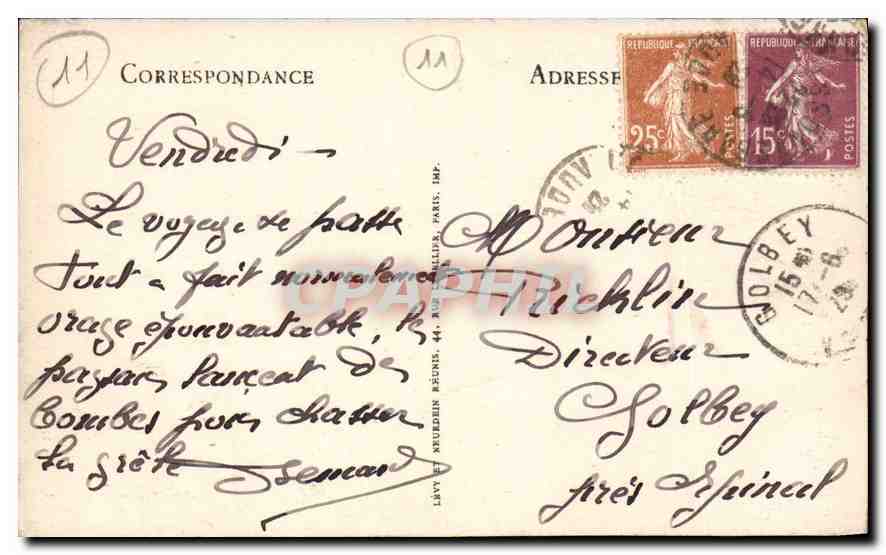 11
11
CORRESPONDANCE
ADRESSE
REPUBLIQUE FRANÇAISE
25c
POSTES
REPUBLIQUE FRANÇAISE
15c
POSTES
Vendredi —
Le voyage se passe
tout à fait normalement
orage épouvantable, les
paysans lancent des
bombes pour chasser
la grêle
Bernard
LÉVY ET NEURDEIN RÉUNIS, 44, RUE LETELLIER, PARIS, IMP.
CPAPHIL
Monsieur
Ricklin
Directeur
Golbey
près Epinal
GOLBEY
15
17-6
29